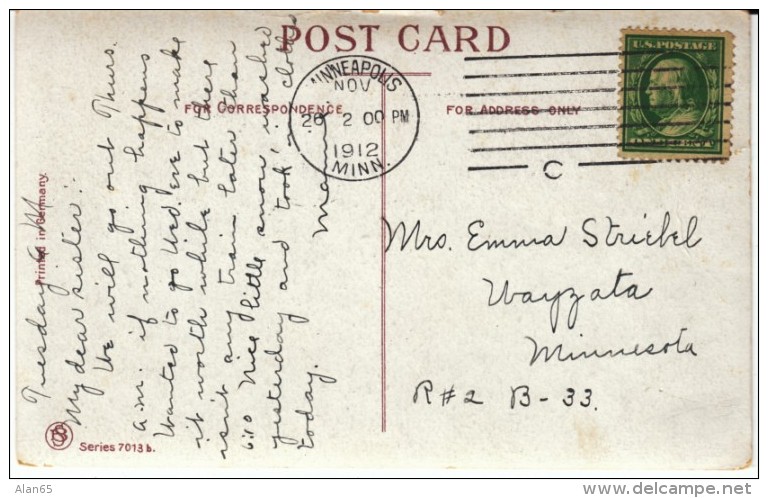 POST CARD
FOR CORRESPONDENCE
FOR ADDRESS ONLY
U.S. POSTAGE
MINNEAPOLIS
NOV
26 2 00 PM
1912
MINN.
C
Mrs. Emma Striebel
Wayzata
Minnesota
R#2 B-33.
Tuesday A.M
My dear sister:-
We will go out Thurs.
a.m if nothing happens
Wanted to go Wed. eve to make
it worth while but there
isn't any train later than
6:10 Nice little snow. washed
yesterday and took in clothes
today. Mary
Printed in Germany.
Series 7013 b.
Alan65
delcampe.net